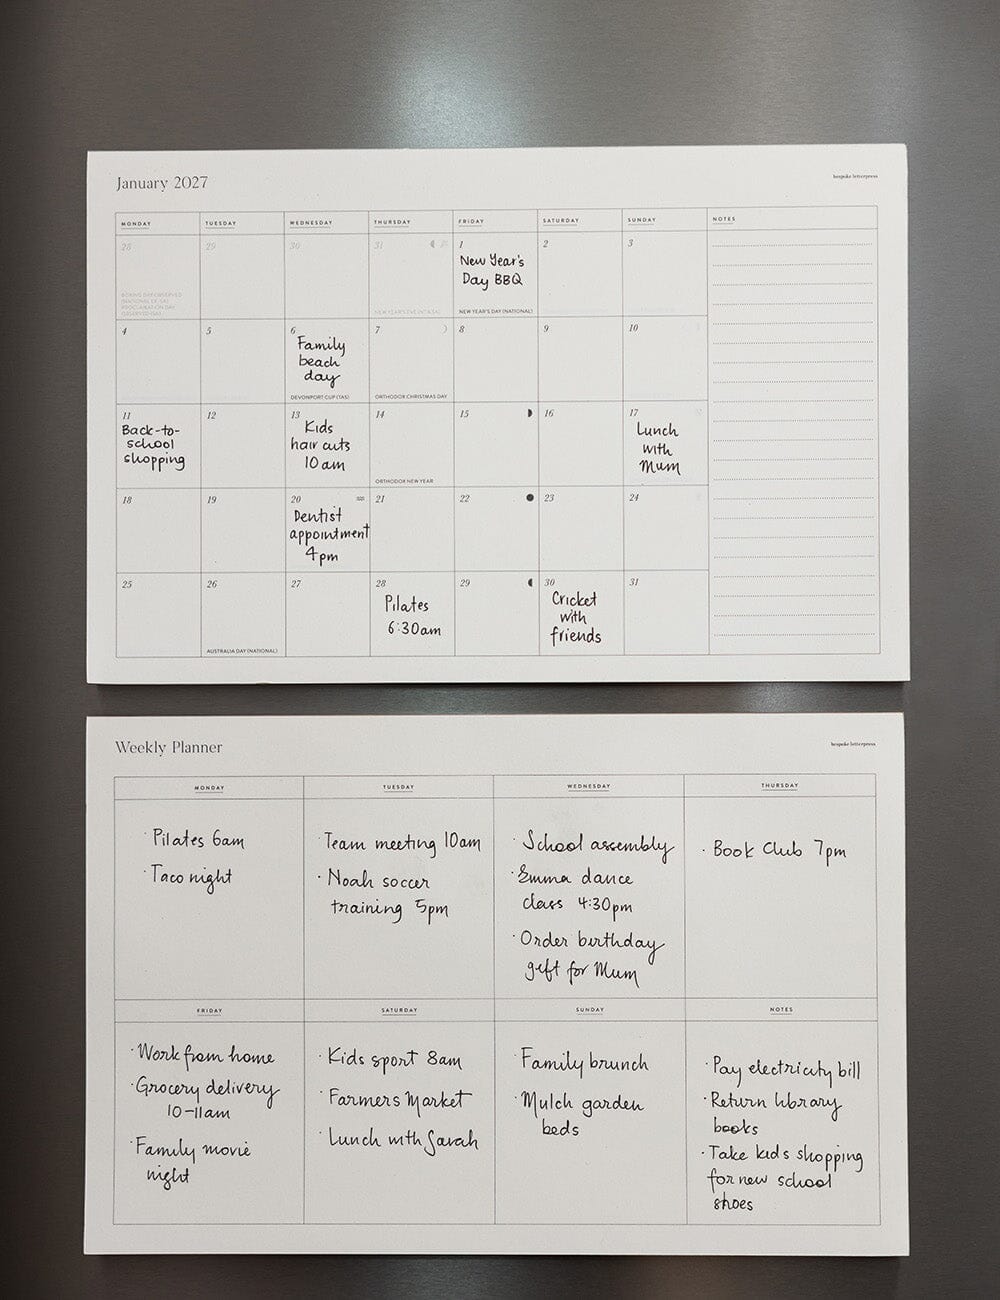 January 2027
bespoke letterpress
MONDAY TUESDAY WEDNESDAY THURSDAY FRIDAY SATURDAY SUNDAY NOTES
28 29 30 31 1 2 3
New Year's
Day BBQ
BOXING DAY OBSERVED
PROCLAMATION DAY
NEW YEAR'S DAY (NATIONAL)
4 5 6 7 8 9 10
Family
beach
day
DEVONPORT CUP (TAS)
ORTHODOX CHRISTMAS DAY
11 12 13 14 15 16 17
Back-to-
school
shopping
Kids
hair cuts
10 am
ORTHODOX NEW YEAR
Lunch
with
Mum
18 19 20 21 22 23 24
Dentist
appointment
4pm
25 26 27 28 29 30 31
AUSTRALIA DAY (NATIONAL)
Pilates
6:30am
Cricket
with
friends
Weekly Planner
bespoke letterpress
MONDAY TUESDAY WEDNESDAY THURSDAY
· Pilates 6am
· Taco night
· Team meeting 10am
· Noah soccer
training 5pm
· School assembly
· Emma dance
class 4:30pm
· Order birthday
gift for Mum
· Book Club 7pm
FRIDAY SATURDAY SUNDAY NOTES
· Work from home
· Grocery delivery
10-11am
· Family movie
night
· Kids sport 8am
· Farmers Market
· Lunch with Sarah
· Family brunch
· Mulch garden
beds
· Pay electricity bill
· Return library
books
· Take kids shopping
for new school
shoes